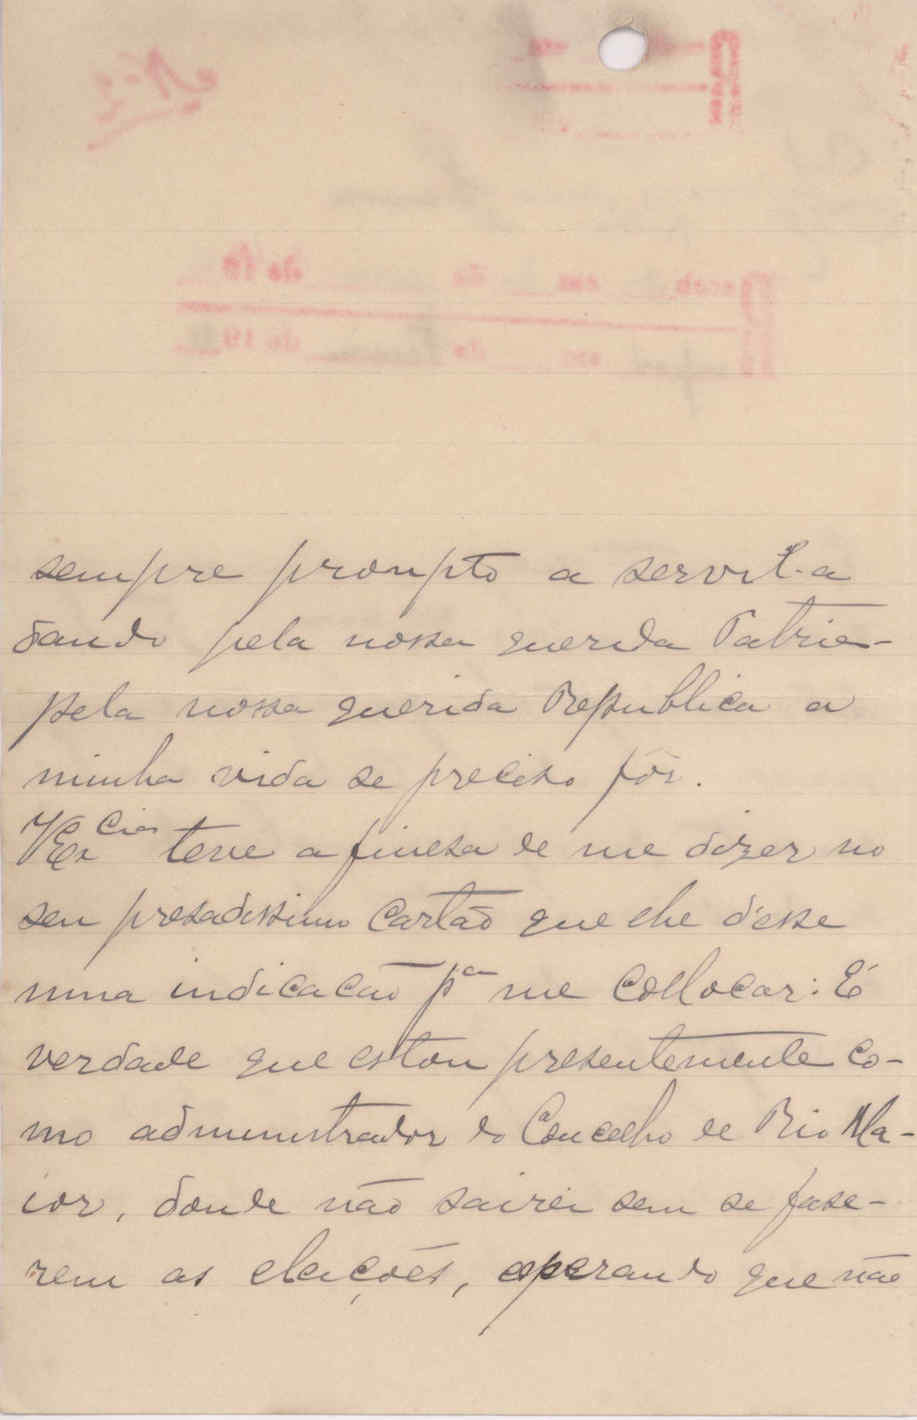 sempre prompto a servil-a
dando pela nossa querida Patria-
pela nossa querida Republica a
minha vida se preciso fôr.
VEx.cia teve a finesa de me dizer no
seu presadissimo cartão que lhe désse
uma indicação pa me collocar: É
verdade que estou presentemente co-
mo administrador do Concelho de Rio Ma-
ior, donde não sairei sem se fase-
rem as eleições, esperando que não